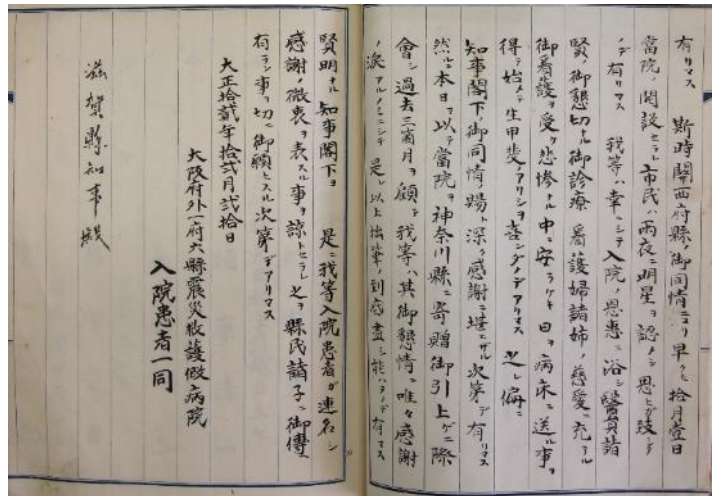 有リマス 斯時関西府縣ノ御同情ニヨリ早クモ拾月壹日
當院ノ開設セラレ市民ハ雨夜ニ明星ヲ認メシ思ヒガ致シタ
ノデ有リマス 我等ハ幸ニシテ入院ノ恩恵ニ浴シ醫員諸
賢ノ御懇切ナル御診療 看護婦諸姉ノ慈愛ニ充テル
御看護ヲ受ケ悲惨ナル中ニ安ラケキ日ヲ病床ニ送ル事ヲ
得テ始メテ生甲斐アリシヲ喜ンダノデアリマス 之レ偏ニ
知事閣下ノ御同情ノ賜ト深ク感謝ニ堪エザル次第デ有リマス
然ルニ本日ヲ以テ當院ヲ神奈川縣ニ寄贈御引上ゲニ際
會シ過去三箇月ヲ顧テ我等ハ其御懇情ニ唯々感謝
ノ涙アルノミニシテ是レ以上拙筆ノ到底盡シ能ハヌノデ有リマス
賢明ナル知事閣下ヨ 是ニ我等入院患者ガ連名シ
感謝ノ微衷ヲ表スル事ヲ諒トセラレ之ヲ縣民諸子ニ御傳
有ラン事ヲ切ニ御願ヒスル次第デアリマス
大正拾貳年拾貳月貳拾日
大阪府外一府六縣震災救護假病院
入院患者一同
滋賀縣知事殿